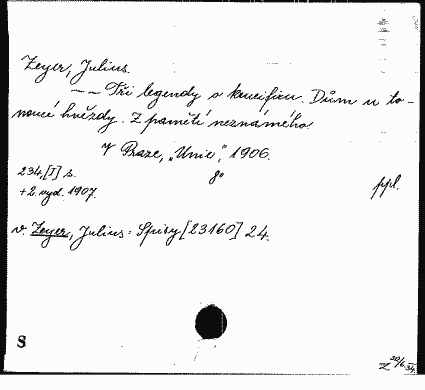 Zeyer, Julius.
— — Tři legendy o krucifixu. Dům u to-
noucí hvězdy. Z pamětí neznámého
V Praze, „Unie", 1906.
234,[I] s. 8°
+2. vyd. 1907. ppl.
v. Zeyer, Julius: Spisy [23160] 24.
S